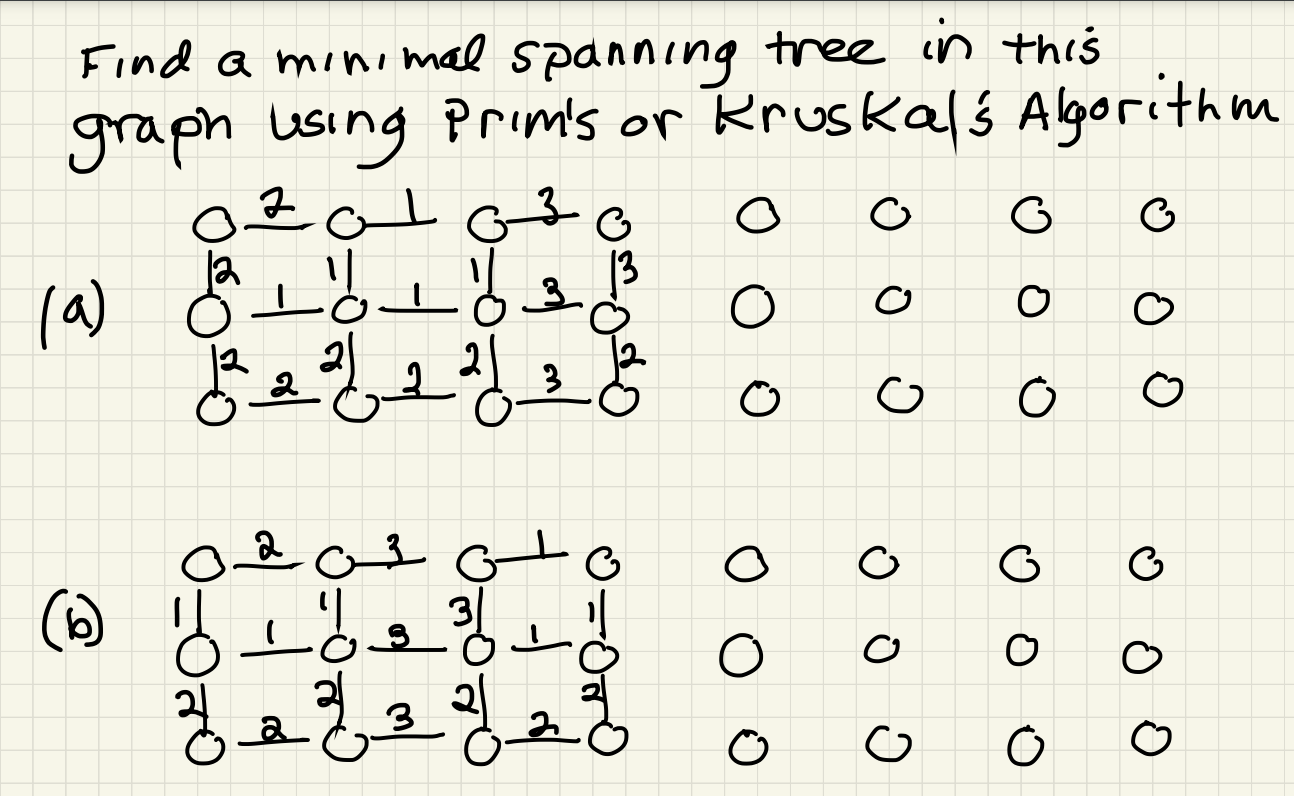 Find a minimal spanning tree in this
graph using Prim's or Kruskal's Algorithm
2 1 3
2 1 1 3
(a) 1 1 3
2 2 2 2
2 2 3
2 3 1
(b) 1 1 3 1
1 3 1
2 2 2 2
2 3 2